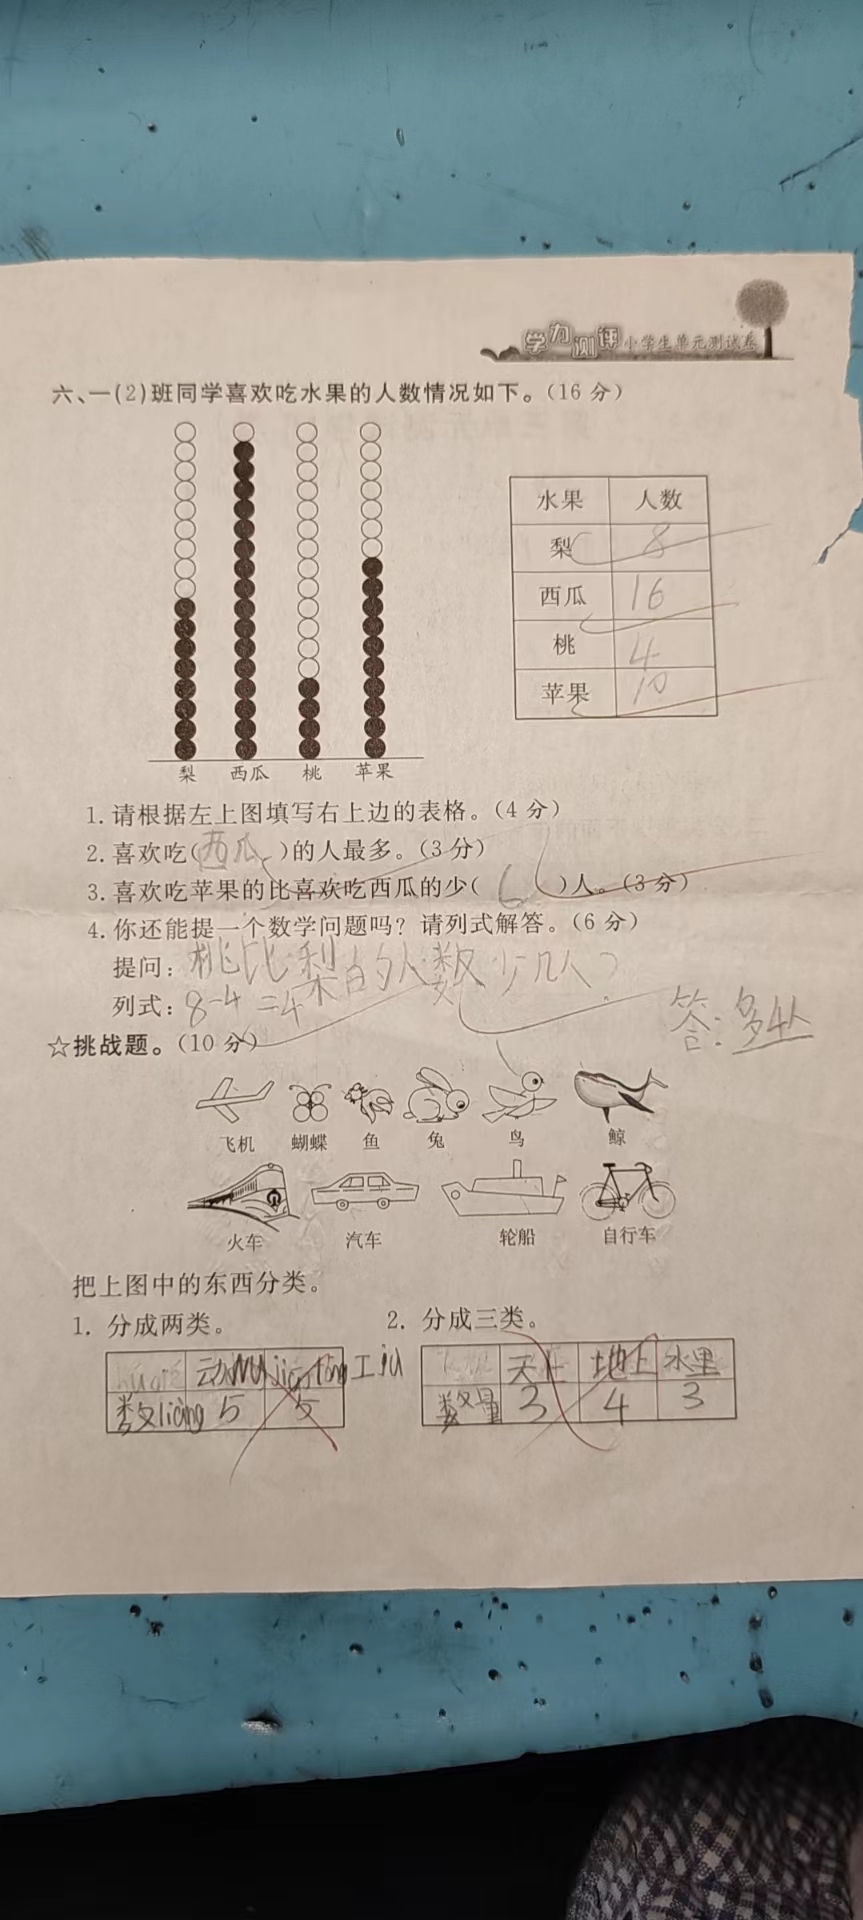 学力测评 小学生单元测试卷
六、一(2)班同学喜欢吃水果的人数情况如下。(16 分)
水果 人数
梨 8
西瓜 16
桃 4
苹果 10
梨 西瓜 桃 苹果
1.请根据左上图填写右上边的表格。(4 分)
2.喜欢吃(西瓜)的人最多。(3 分)
3.喜欢吃苹果的比喜欢吃西瓜的少(6)人。(3 分)
4.你还能提一个数学问题吗？请列式解答。(6 分)
提问：桃比梨的人数少几人？
列式：8-4=4
答:多4人
☆挑战题。(10 分)
飞机 蝴蝶 鱼 兔 鸟 鲸
火车 汽车 轮船 自行车
把上图中的东西分类。
1. 分成两类。 2. 分成三类。
动wu jiao tong工ju
数liang 5 5
天上 地上 水里
数量 3 4 3